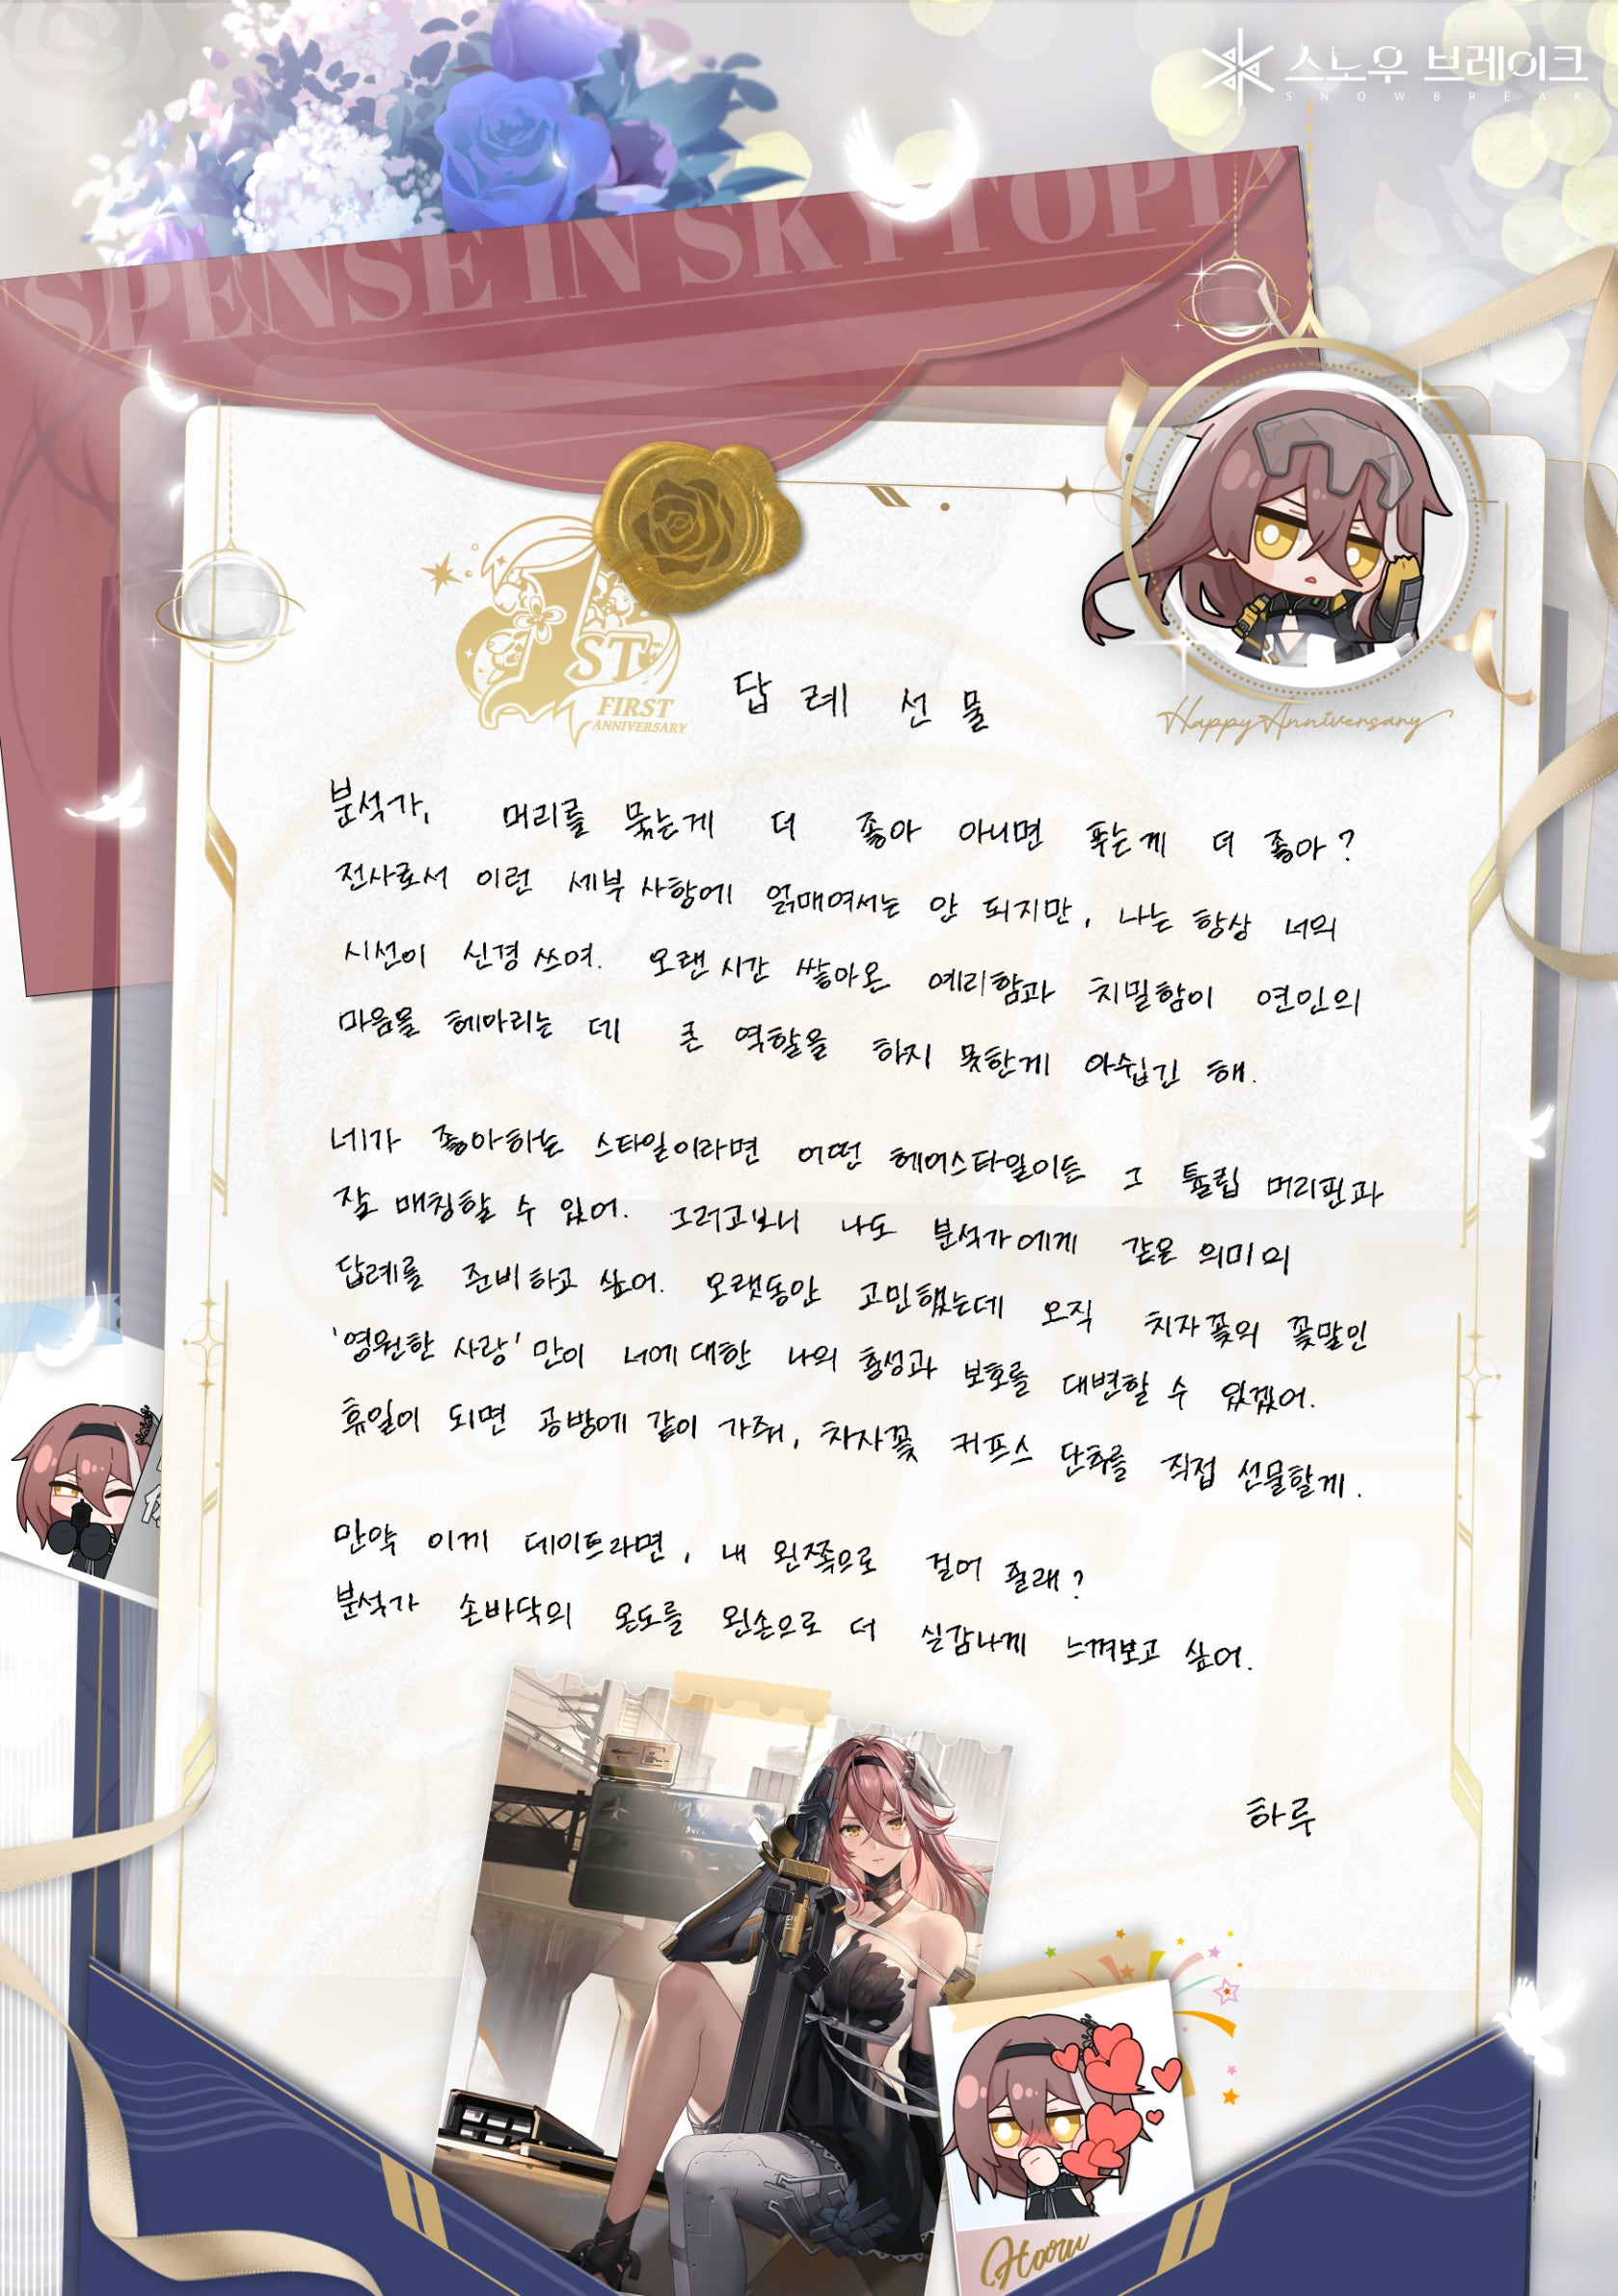 스노우 브레이크
SNOWBREAK
SPENSE IN SKYTOPIA
1ST
FIRST
ANNIVERSARY
Happy Anniversary
답례 선물
분석가, 머리를 묶는게 더 좋아 아니면 푸는게 더 좋아?
전사로서 이런 세부 사항에 얽매여서는 안 되지만, 나는 항상 너의
시선이 신경 쓰여. 오랜 시간 쌓아온 예리함과 치밀함이 연인의
마음을 헤아리는 데 큰 역할을 하지 못한게 아쉽긴 해.
네가 좋아하는 스타일이라면 어떤 헤어스타일이든 그 튤립 머리핀과
잘 매칭할 수 있어. 그러고보니 나도 분석가에게 같은 의미의
답례를 준비하고 싶어. 오랫동안 고민했는데 오직 치자꽃의 꽃말인
'영원한 사랑' 만이 너에 대한 나의 충성과 보호를 대변할 수 있겠어.
휴일이 되면 공방에 같이 가줘, 차자꽃 커프스 단추를 직접 선물할게.
만약 이게 데이트라면, 내 왼쪽으로 걸어 줄래?
분석가 손바닥의 온도를 왼손으로 더 실감나게 느껴보고 싶어.
하루
Haru